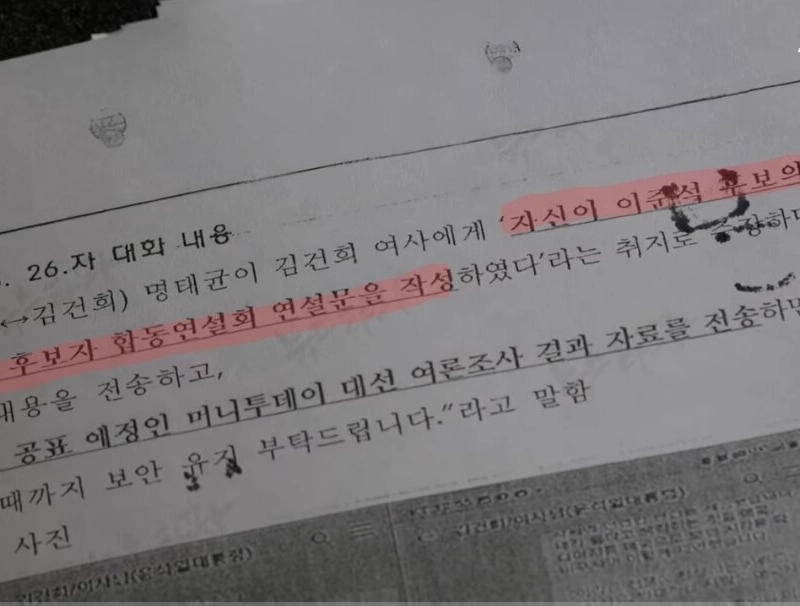 . 26.자 대화 내용
↔김건희) 명태균이 김건희 여사에게 ‘자신이 이준석 후보의
후보자 합동연설회 연설문을 작성하였다’라는 취지로
내용을 전송하고,
공표 예정인 미니투데이 대선 여론조사 결과 자료를 전송하면
때까지 보안 유지 부탁드립니다.”라고 말함
사진
김건희/여사님(윤석열대통령)
김건희/여사님(윤석열대통령)